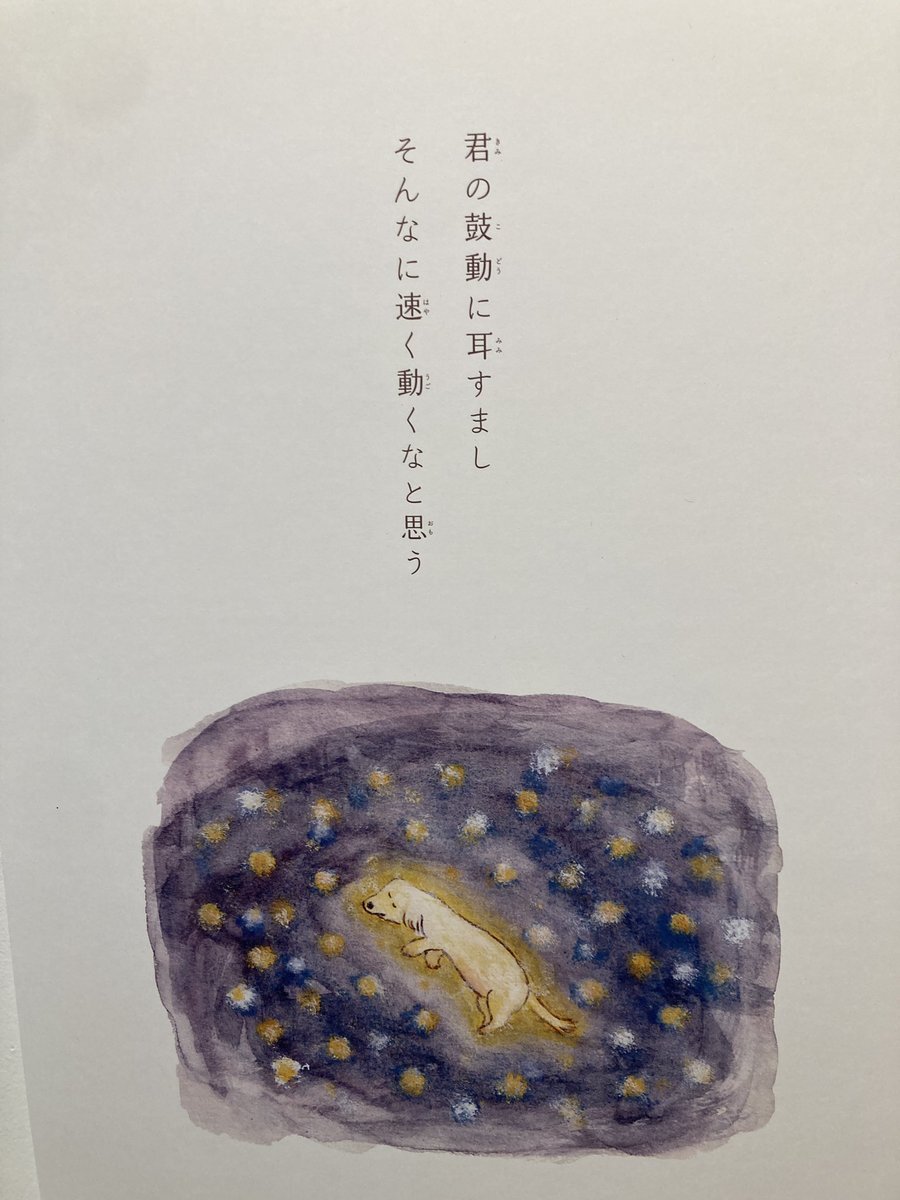 君の鼓動に耳すまし
そんなに速く動くなと思う